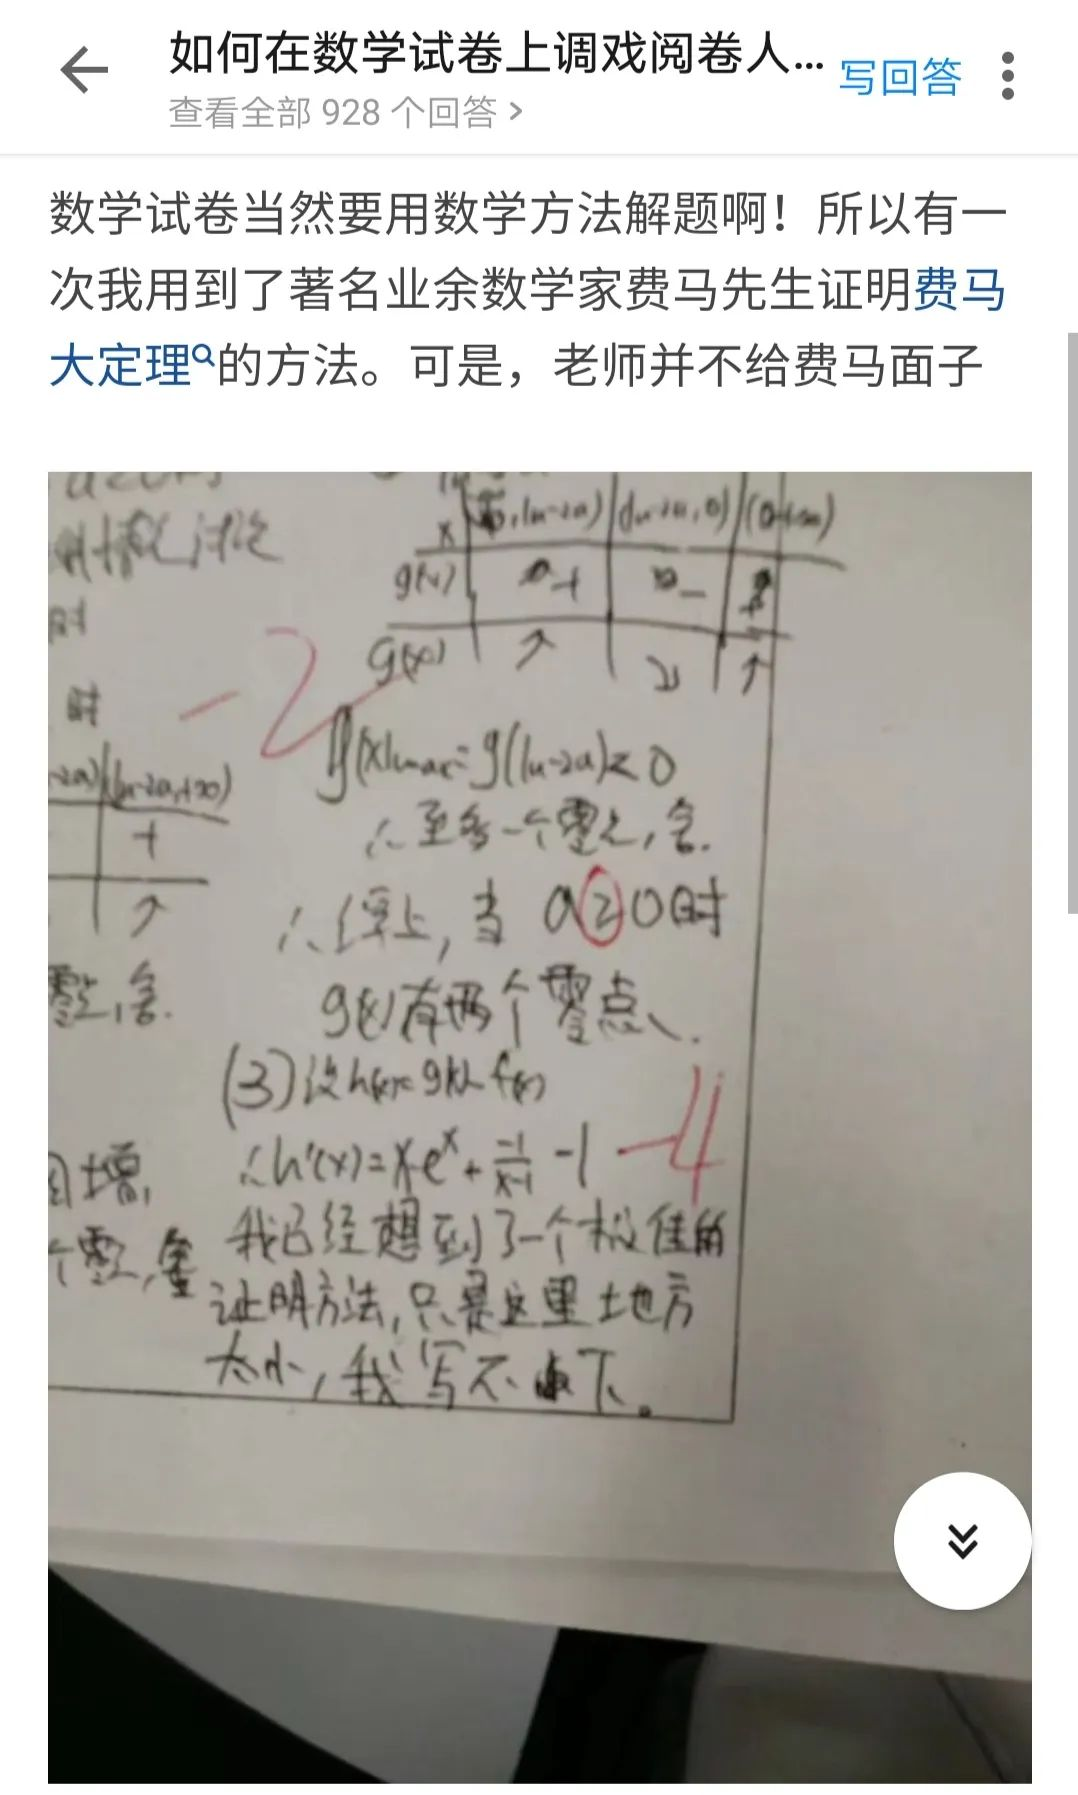 如何在数学试卷上调戏阅卷人...
写回答
查看全部 928 个回答 >
数学试卷当然要用数学方法解题啊！所以有一
次我用到了著名业余数学家费马先生证明费马
大定理的方法。可是，老师并不给费马面子
x
(ln-2a,0)
g'(x)
+
-
g(x)
↗
↘
↗
-2
时
时
(ln-2a,+∞)
+
↗
g(x)max=g(ln-2a)<0
∴至多一个零点,舍.
∴综上,当 a≥0时
g(x)有两个零点、.
(3)设h(x)=g(x)-f(x)
∴h'(x)=x·e^x+\frac{-1}{x-1}-1
-4
增,
我已经想到了一个极佳的
证明方法,只是这里土地方
太小,我写不下。